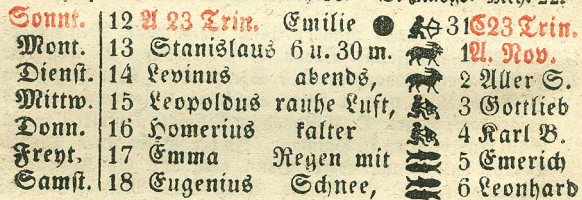 Sonnt. 12 A 23 Trin. Emilie 31 C23 Trin.
Mont. 13 Stanislaus 6 u. 30 m. 1 A. Nov.
Dienst. 14 Levinus abends, 2 Aller S.
Mittw. 15 Leopoldus rauhe Luft, 3 Gottlieb
Donn. 16 Homerius kalter 4 Karl B.
Freyt. 17 Emma Regen mit 5 Emerich
Samst. 18 Eugenius Schnee, 6 Leonhard